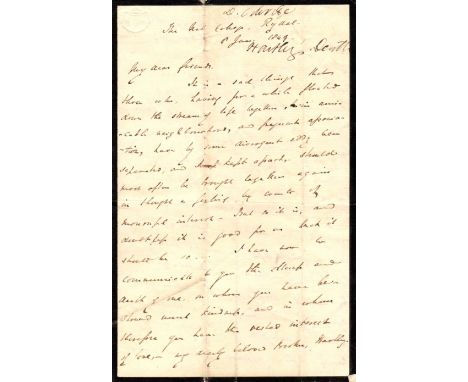 D. Coleridge
The Nab Cottage, Rydal.
8 Jany. 1849
Hartley Death
My dear friends
It is a sad thing that
those who, having for a while floated
down the stream of life together in ami-
-cable neighbourhood, and frequent associa-
-tion, have by some divergent eddy been
separated, and kept apart, should
most often be brought together again
in thought & feeling by events of
mournful interest - But so it is, and
doubtless it is good for us that it
should be so... I have now to
communicate to you the illness and
death of one, on whom you have been
showed much kindness, and in whom
therefore you have the vested interest
of love, - my dearly beloved Brother, Hartley